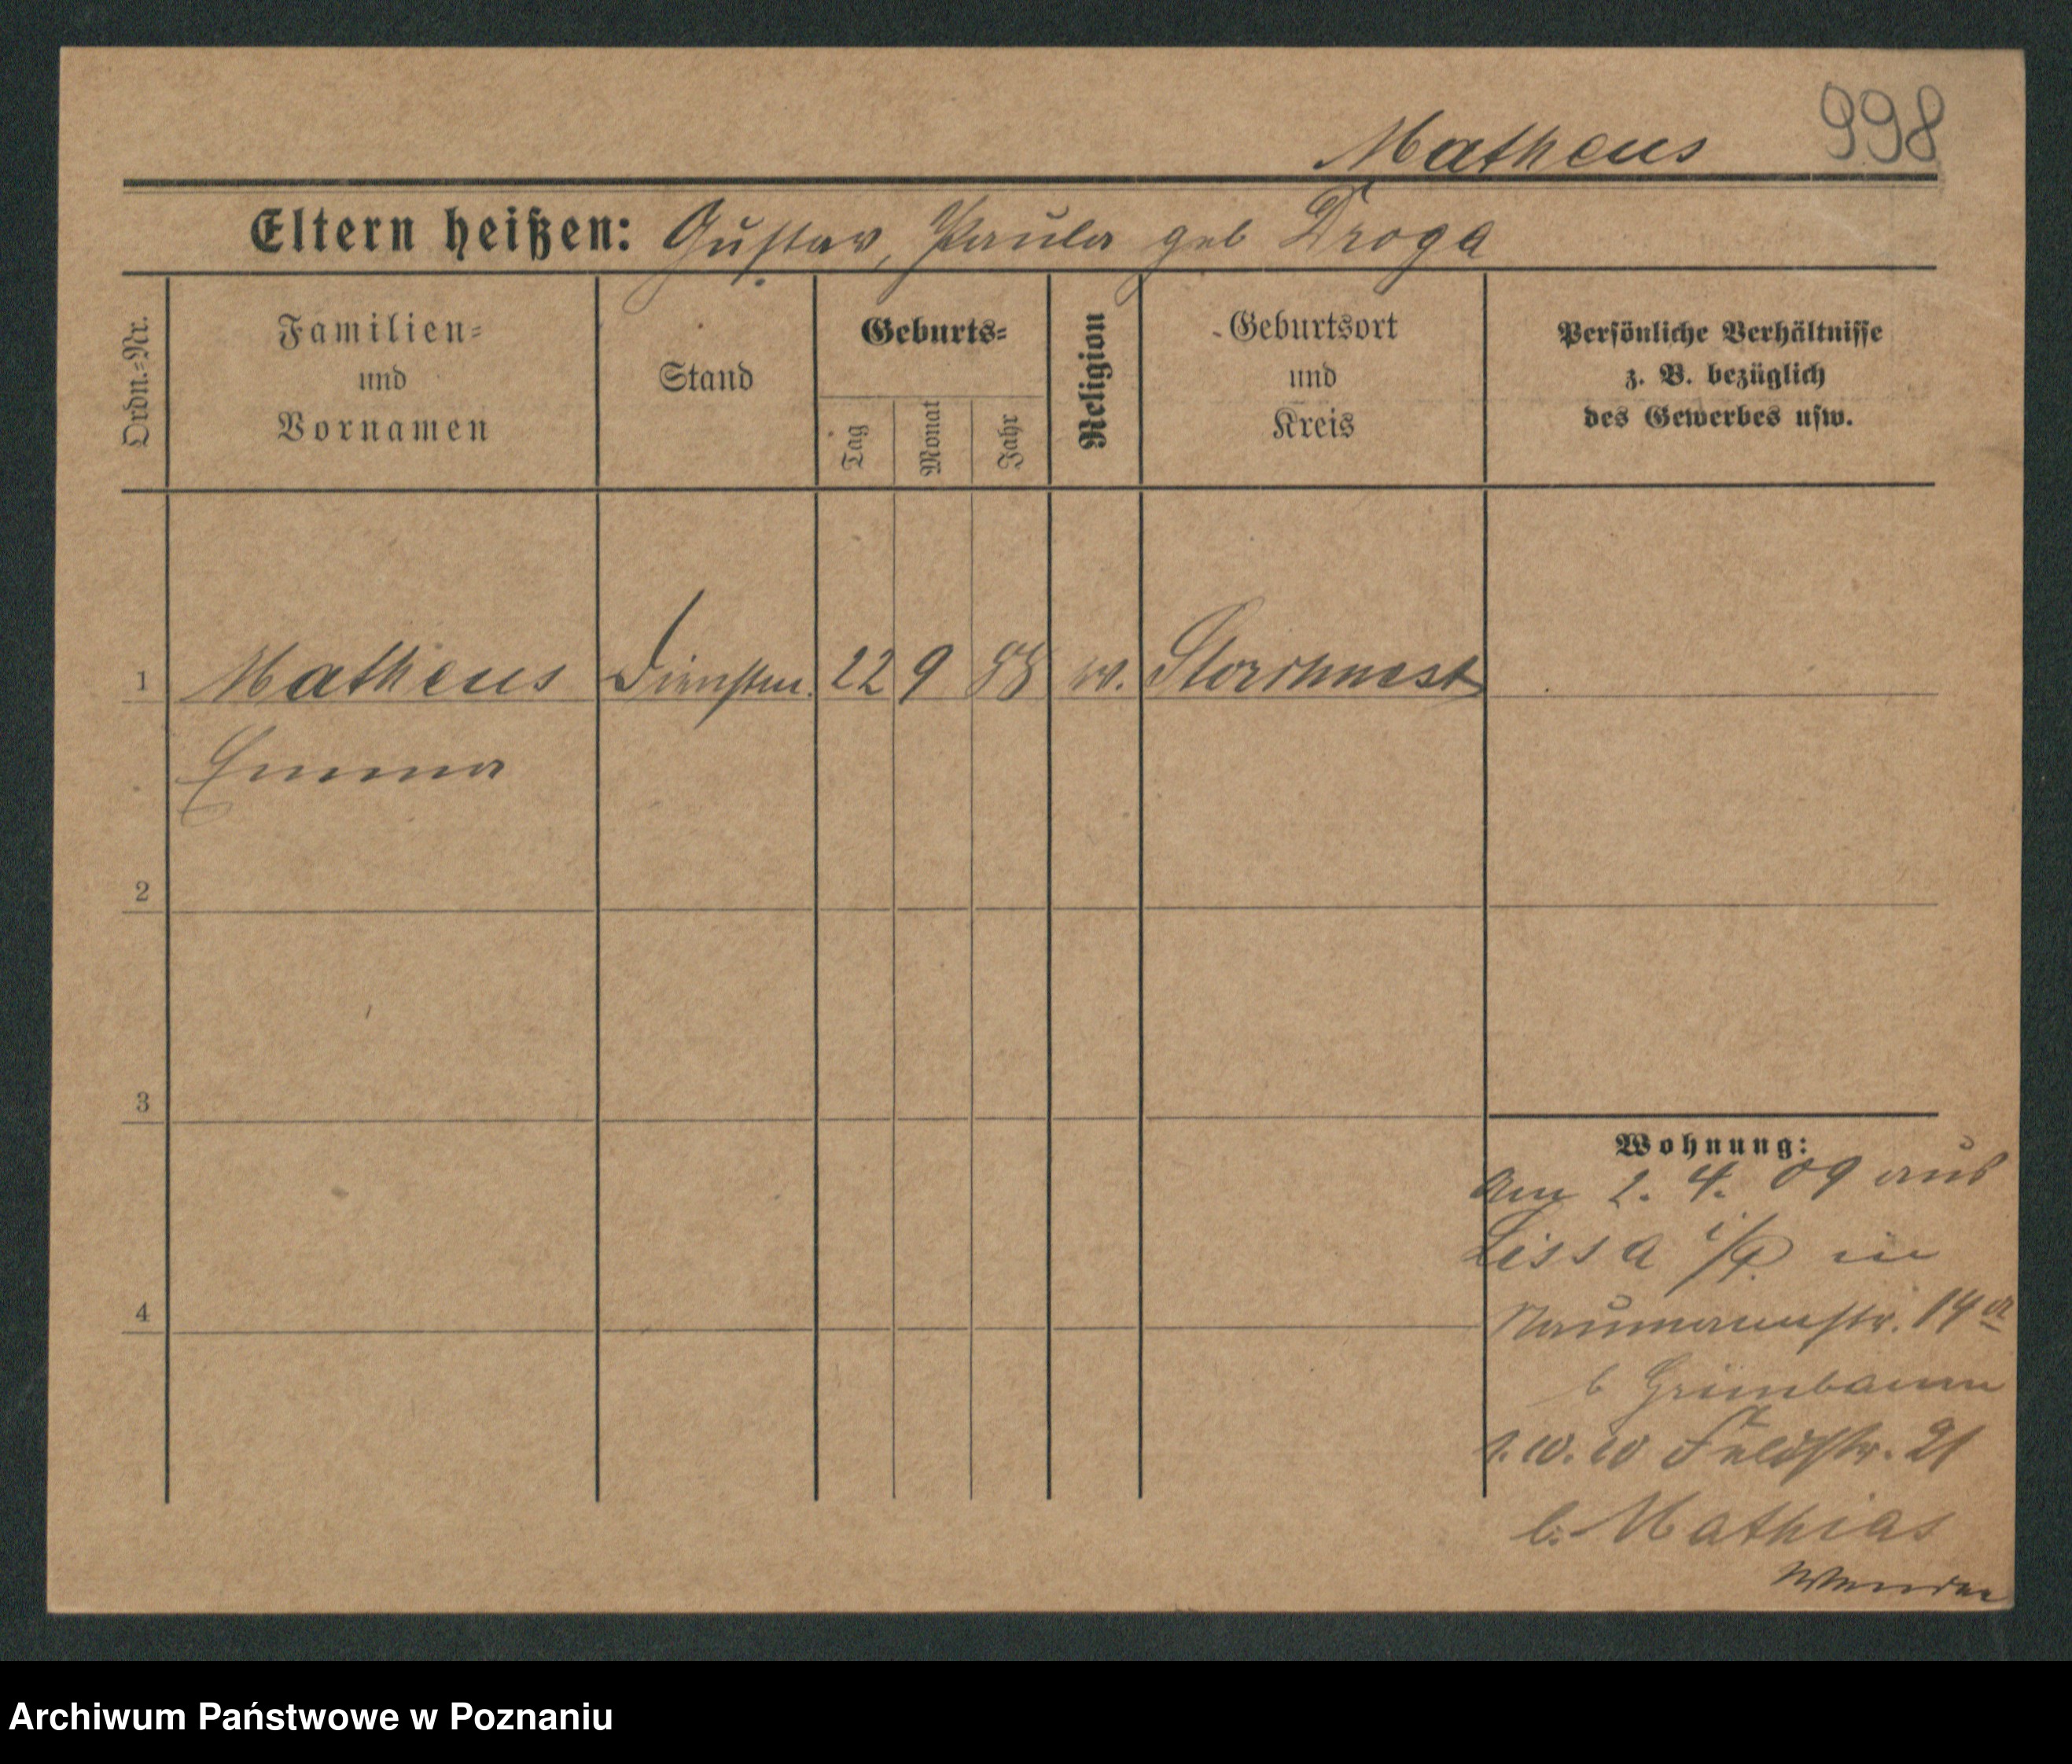 998
Matheus
Eltern heißen: Gustav, Paula geb Droga
Ordn.-Nr.
Familien-
und
Vornamen
Stand
Geburts-
Tag
Monat
Jahr
Religion
Geburtsort
und
Kreis
Persönliche Verhältnisse
z. B. bezüglich
des Gewerbes usw.
1 Matheus Dienstm. 22 9 88 Storchnest
Emma
2
3
4
Wohnung:
Am 2. 4. 09 aus
Lissa i/P. in
Naumannstr. 14a
b Grünbaum
Feldstr. 21
b. Mathias
Wenden
Archiwum Państwowe w Poznaniu